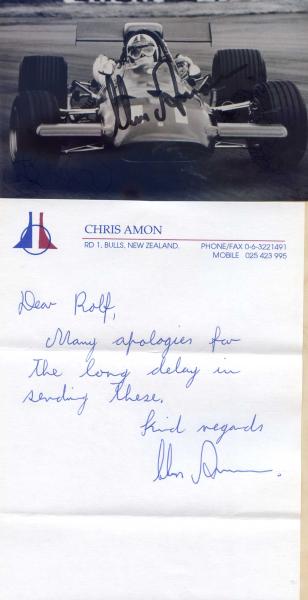 Chris Amon
CHRIS AMON
RD 1, BULLS, NEW ZEALAND.
PHONE/FAX 0-6-3221491
MOBILE 025 423 995
Dear Rolf,
Many apologies for
the long delay in
sending these.
Kind regards
Chris Amon.